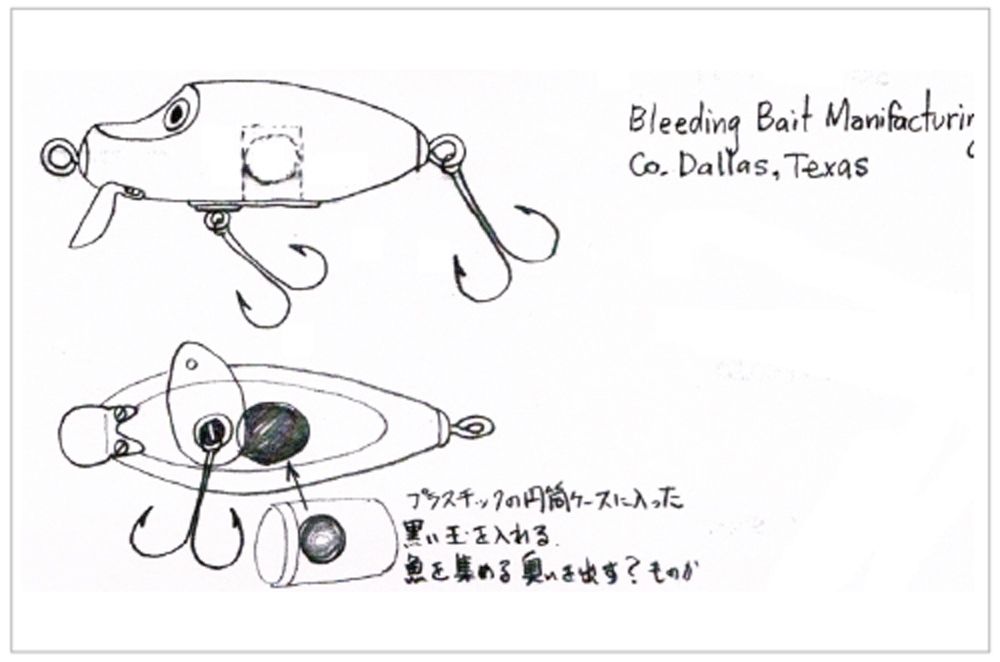 Bleeding Bait Manifacturin
Co. Dallas, Texas
プラスチックの円筒ケースに入った
黒い玉を入れる.
魚を集める臭いを出す?ものか